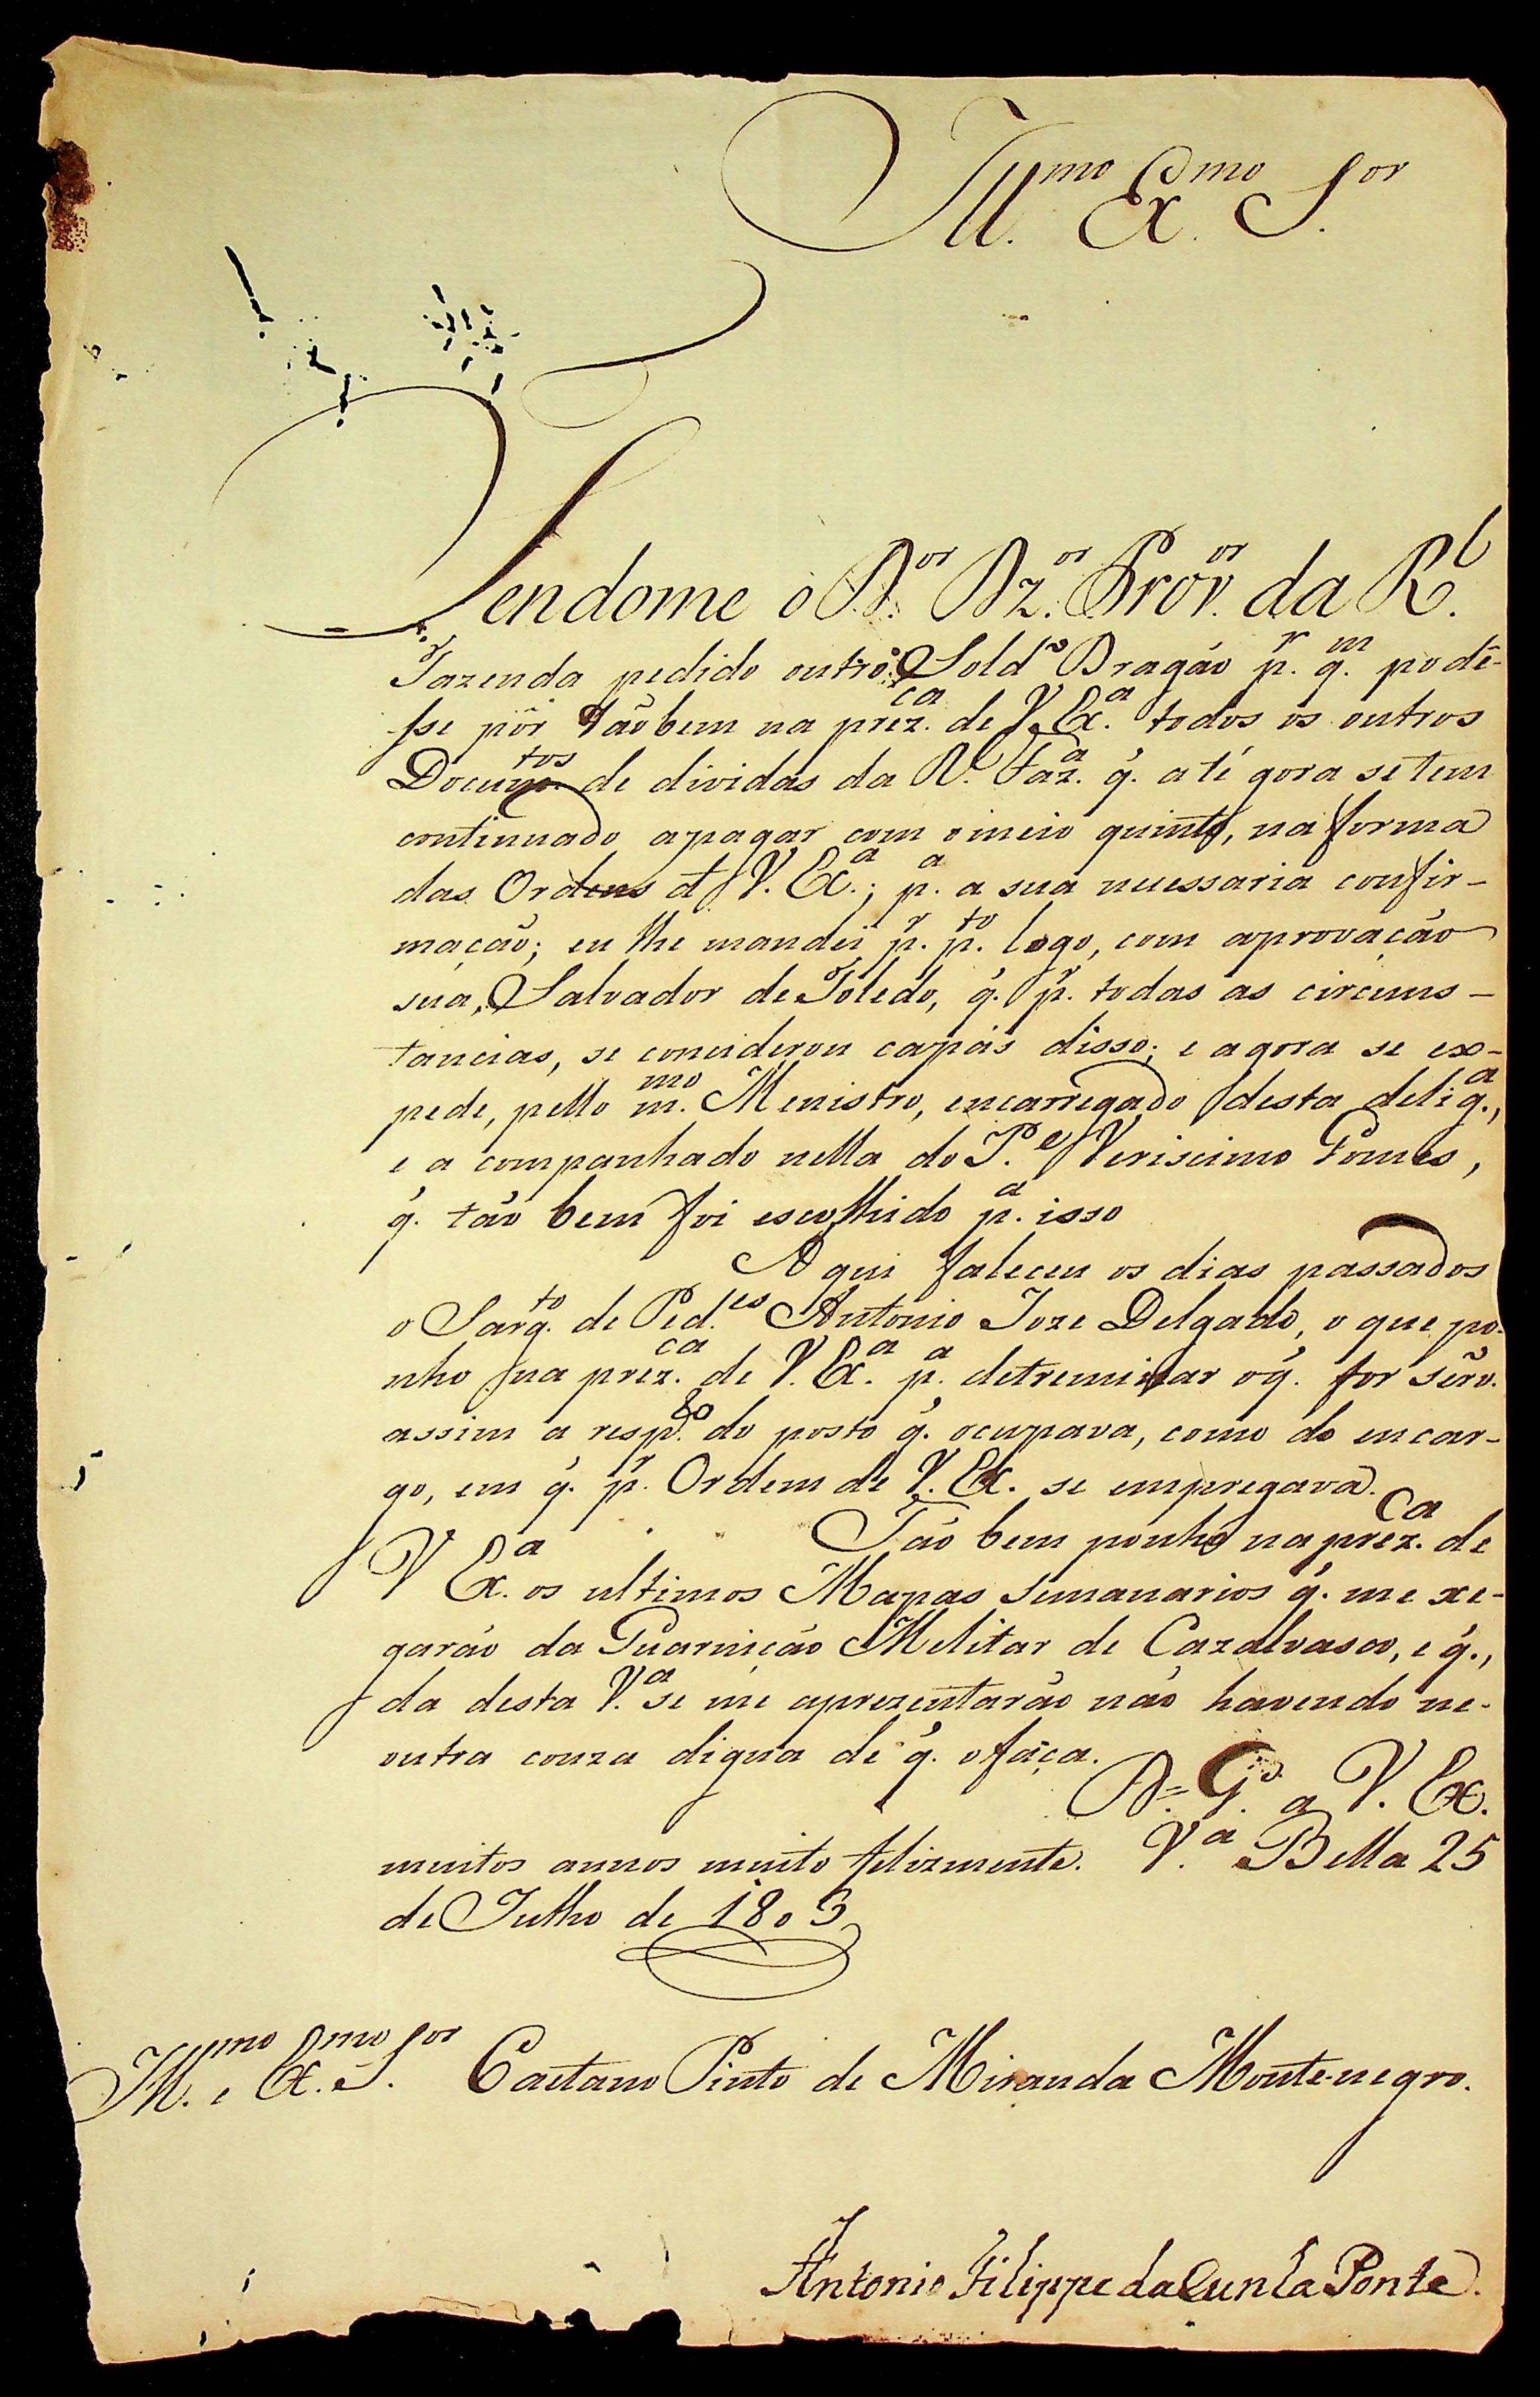 Ill.mo Ex.mo S.or
Sendome o D.or Dz.or Prov.or da R.l
Fazenda pedido outro Sold.o Dragão p.r q.m podê-
sse pôr tãobem na prez.ca de V. Ex.a todos os outros
Docum.tos de dividas da R.l Faz.a q. até gora se tem
continuado apagar com omeio quinto, na forma
das Ordens de V. Ex.a; p.a a sua necessaria confir-
mação; eu lhe mandei p.r p.to logo, com aprovação
sua, Salvador de Toledo, q. p.r todas as circuns-
tancias, se conciderou capás disso; e agora se ex-
pede, pello m.mo Menistro, encarregado desta delig.a,
e a companhado nella do P.e Veriscimo Gomes,
q. tão bem foi escolhido p.a isso
Aqui faleceu os dias passados
o Sarg.to de Ped.es Antonio Joze Delgado, o que po-
nho na prez.ca de V. Ex.a p.a detreminar oq. for serv.
assim a resp.to do posto q. ocupava, como do encar-
go, em q. p.r Ordem de V. Ex. se empregava.
Tão bem ponho na prez.ca de
V Ex.a os ultimos Mapas semanarios q. me xe-
garão da Guarnição Melitar de Cazalvasco, e q.,
da desta V.a se me aprezentarão não havendo ne-
outra couza digna de q. ofaça.
D.s G.e a V. Ex.
muitos annos muito felizmente. V.a Bella 25
de Julho de 1803
Ill.mo e Ex.mo S.or Caetano Pinto de Miranda Montenegro.
Antonio Filippe da Cunha Ponte.